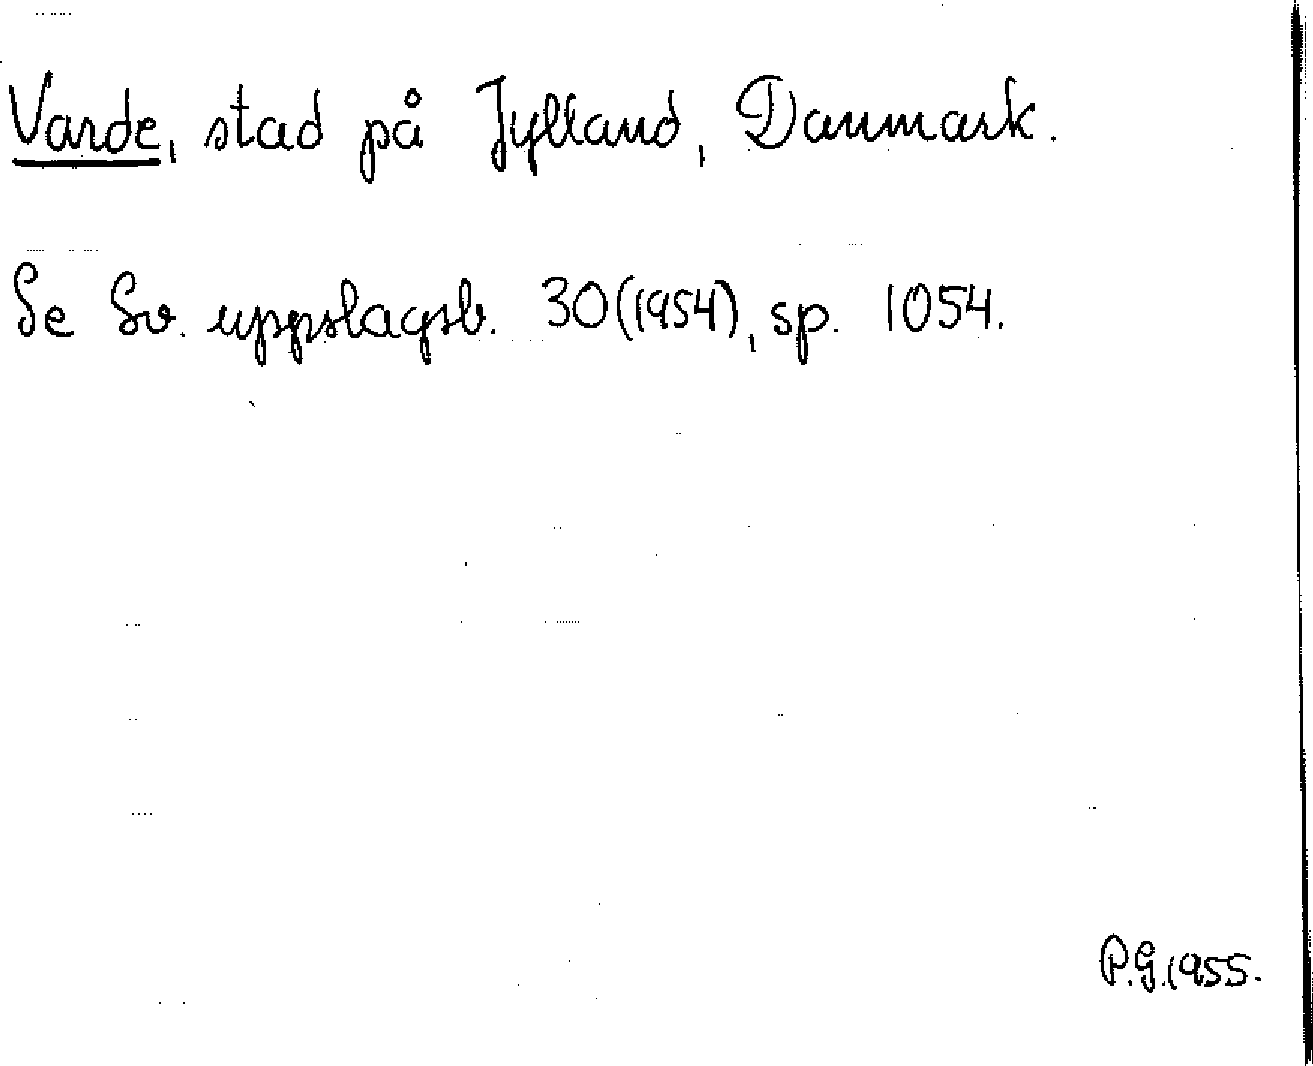 Varde, stad på Jylland, Danmark.
Se Sv. uppslagsb. 30(1954), sp. 1054.
P.G.1955.